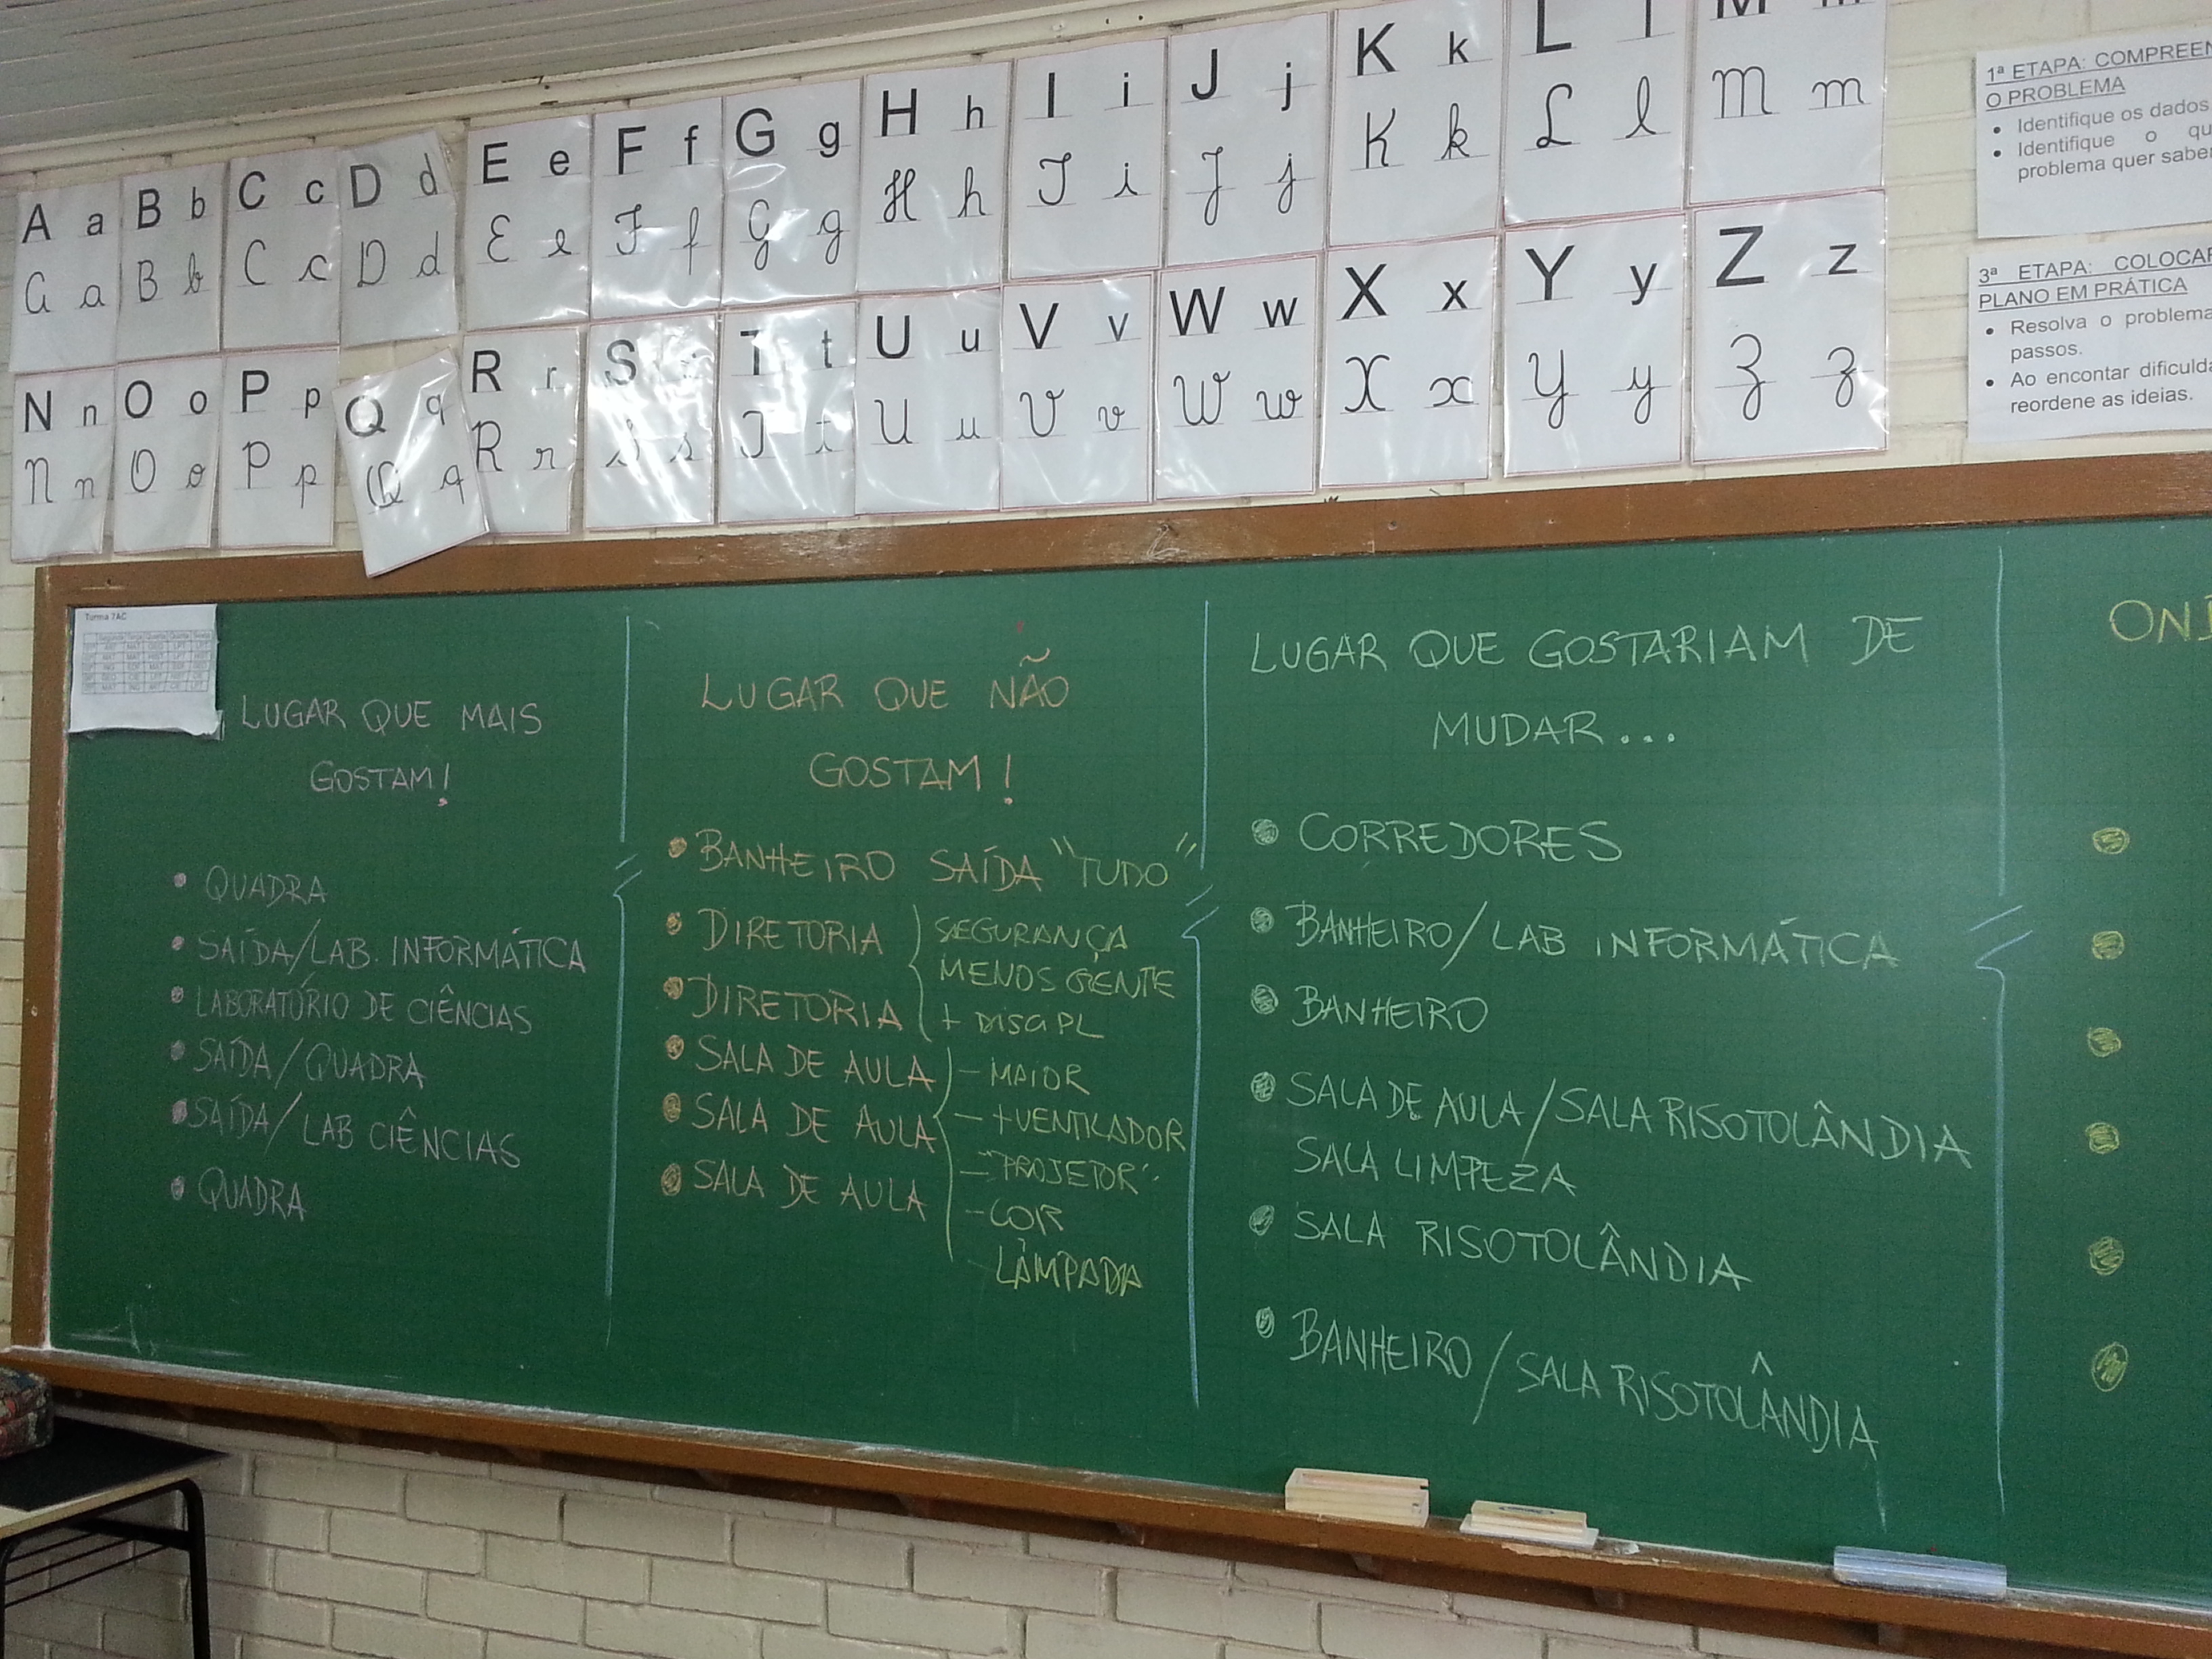 A a B b C c D d E e F f G g H h I i J j K k L l M m
A a B b C c D d E e F f G g H h I i J j K k L l M m
N n O o P p Q q R r S s T t U u V v W w X x Y y Z z
N n O o P p Q q R r S s T t U u V v W w X x Y y Z z
1ª ETAPA: COMPREEN
O PROBLEMA
• Identifique os dados
• Identifique o qu
problema quer saber
3ª ETAPA: COLOCAR
PLANO EM PRÁTICA
• Resolva o problema
passos.
• Ao encontar dificulda
reordene as ideias.
Turma 7AC
LUGAR QUE MAIS
GOSTAM!
• QUADRA
• SAÍDA/LAB. INFORMÁTICA
• LABORATÓRIO DE CIÊNCIAS
• SAÍDA/QUADRA
• SAÍDA/LAB CIÊNCIAS
• QUADRA
LUGAR QUE NÃO
GOSTAM!
• BANHEIRO SAÍDA "TUDO"
• DIRETORIA
• DIRETORIA
SEGURANÇA
MENOS GENTE
+ DISCIPL
• SALA DE AULA
• SALA DE AULA
• SALA DE AULA
- MAIOR
- + VENTILADOR
- "PROJETOR"
- COR
LÂMPADA
LUGAR QUE GOSTARIAM DE
MUDAR...
• CORREDORES
• BANHEIRO/LAB INFORMÁTICA
• BANHEIRO
• SALA DE AULA/SALA RISOTOLÂNDIA
SALA LIMPEZA
• SALA RISOTOLÂNDIA
• BANHEIRO/SALA RISOTOLÂNDIA
OND